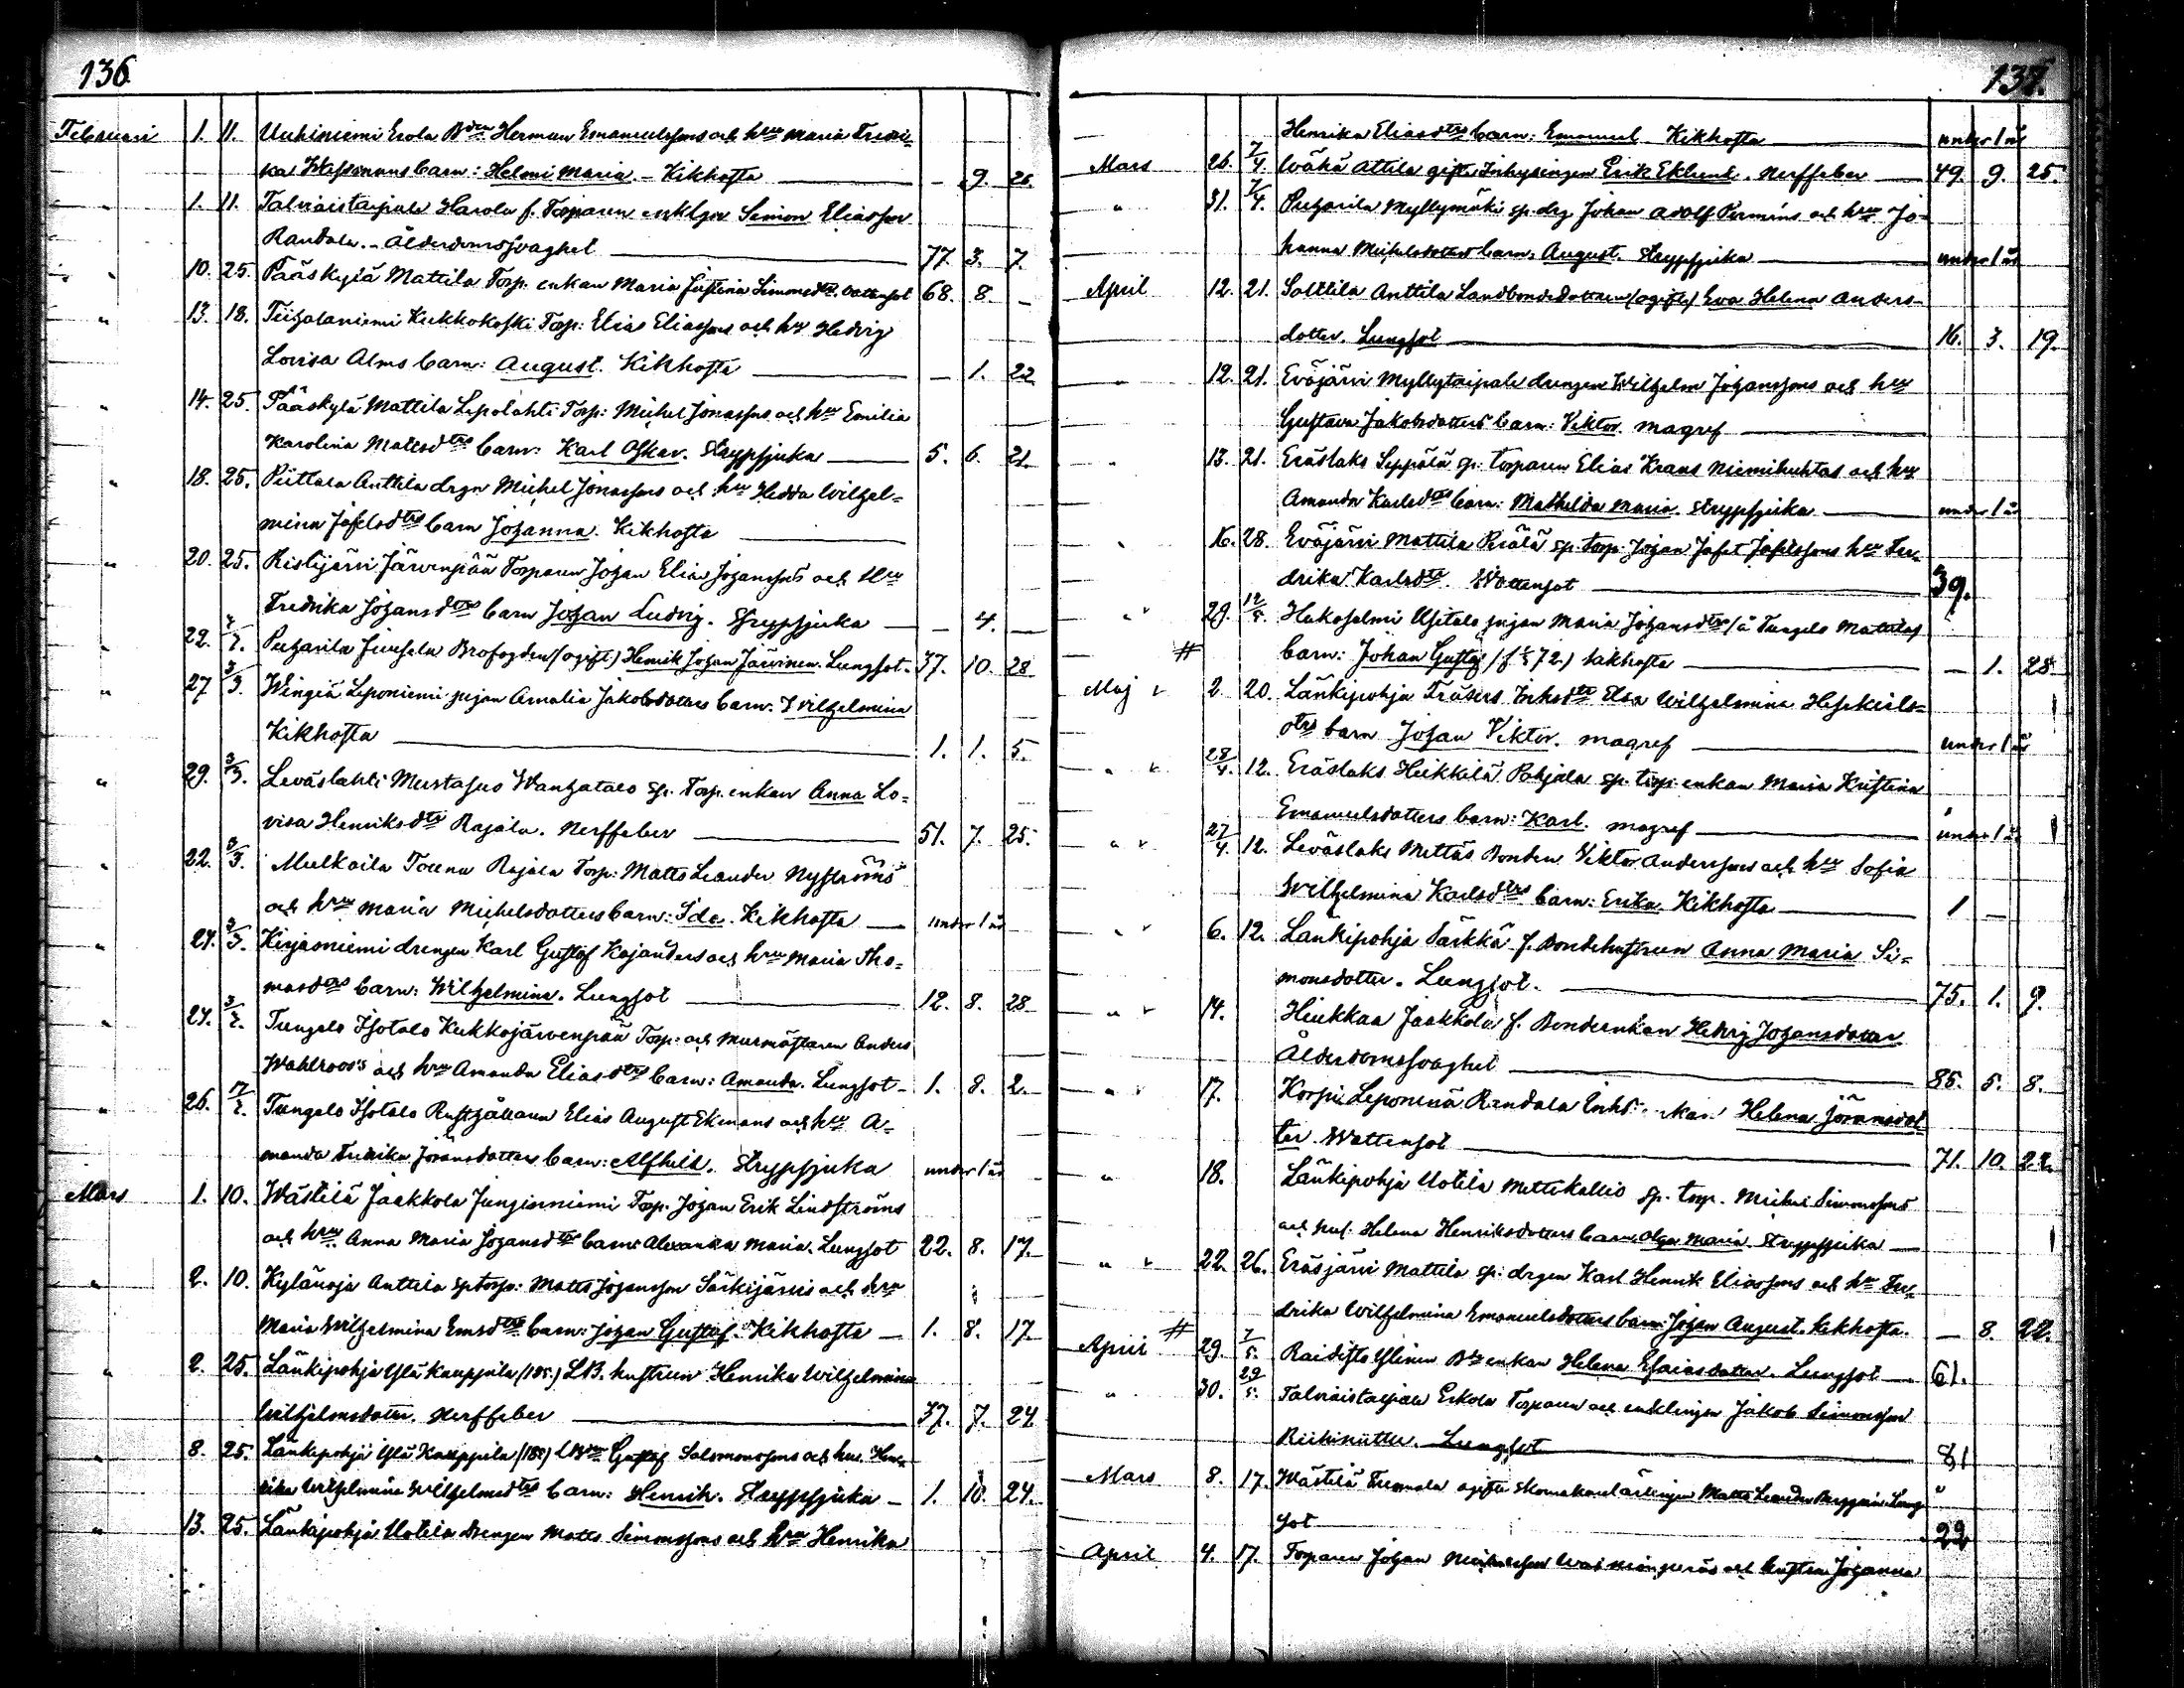 136.
Februari 1. 11. Uuhiniemi Erola Bden Herman Emanuelssons och hru Maria Fredri-
ka Wessmans barn: Helmi Maria. - Kikhosta — 9. 26.
" 1. 11. Talviaistaipale Harola f. Torparen enklgn Simon Eliasson
Randala. - Ålderdomssvaghet 77. 3. 7.
" 10. 25. Pääskylä Mattila Torp. enkan Maria Justina Simonsdtr. Vattensot 68. 8. —
" 13. 18. Tiihalaniemi Kukkokoski Torp: Elias Eliassons och hru Hedvig
Lovisa Alms barn: August. Kikhosta — 1. 22
" 14. 25. Pääskylä Mattila Lepolahti Torp: Michel Jonassons och hru Emilia
Karolina Mattsdtrs barn: Karl Oskar. Strypsjuka 5. 6. 21.
" 18. 25. Piittala Anttila drgn Michel Jonassons och hru Hedda Wilhel-
mina Josefsdtrs barn Johanna. Kikhosta
" 20. 25. Ristijärvi Järvenpään Torparen Johan Elia Johanssons och Hru
Fredrika Johansdtrs barn Johan Ludvig. Strypsjuka — 4. —
22. Puharila Juusela Brofogden (ogift) Henrik Johan Järvinen. Lungsot. 37. 10. 28
27 3/3. Wingiä Leponiemi pigan Amalia Jakobsdotters barn: Wilhelmina
Kikhosta 1. 1. 5.
" 29. 3/3. Leväslahti Mustasuo Wanhatalo sp. Torp. enkan Anna Lo-
visa Henriksdtr Rajala. Nerffeber 51. 7. 25.
" 22. 3/3. Mulkoila Rajala Torp: Matts Leander Nyströms
och hru Maria Michelsdotters barn: Ida. Kikhosta — under 1 år
" 24. 3/3. Kirjasniemi drengen Karl Gustaf Kajanders och hru Maria Tho-
masdtrs barn: Wilhelmina. Lungsot 12. 8. 28
" 24. Tungelo Isotalo Kukkojärvenpään Torp: och murmästaren Anders
Wahlroos's och hru Amanda Eliasdtrs barn: Amanda. Lungsot 1. 8. 2.
" 26. Tungelo Isotalo Rusthållaren Elias August Ekmans och hru A-
manda Fredrika Jöransdotters barn: Alfhild. Strypsjuka under 1 år
Mars 1. 10. Wästilä Jaakkola Jungisniemi Torp. Johan Erik Lindströms
och hru Anna Maria Johansdtrs barn Alexandra Maria. Lungsot 22. 8. 17.
" 2. 10. Kylänoja Anttila sp torp: Matts Johansson Särkijärvis och hru
Maria Wilhelmina Emsdtrs barn: Johan Gustaf. Kikhosta — 1. 8. 17.
" 2. 25. Länkipohja Ylä Kauppila (185.) LB. hustrun Henrika Wilhelmina
Wilhelmsdotter. Nerffeber 37. 7. 24.
8. 25. Länkipohja Ylä Kauppila (185) LBden Gustaf Salomonssons och hru. Hen-
rika Wilhelmina Wilhelmsdtrs barn: Henrik. Strypsjuka — 1. 10. 24.
" 13. 25. Länkipohja Uotila drengen Matts Simonssons och hru Henrika
137.
Henrika Eliasdtrs barn: Emanuel Kikhosta under 1 år
Mars 26. 7/4. Wäkä Attila gifte Inhysingen Erik Eklund. Nerffeber 49. 9. 25.
" 31. 7/4. Puharila Myllymäki sp. drg Johan Adolf Permins och hru Jo-
hanna Michelsdotters barn: August. Strypsjuka under 1 år
April 12. 21. Salttila Anttila Landbondedottern (ogifte) Eva Helena Anders-
dotter. Lungsot 16. 3. 19.
" 12. 21. Eväjärvi Myllytaipale drengen Wilhelm Johanssons och hru
Gustava Jakobsdotters barn: Viktor. magref
" 13. 21. Eräslaks Seppälä sp. torparen Elias Krans Niemihuhtas och hru
Amanda Karlsdtrs barn: Mathilda Maria. Strypsjuka — under 1 år
" 16. 28. Eväjärvi Mattila Perälä sp. torp: Johan Jafet Jafetssons hru Fre-
drika Karlsdtr. Wattensot 39.
" 29. 12/5. Hakosalmi Ylitalo pigan Maria Johansdtrs (å Tungelo Mattila)
# barn: Johan Gustaf (f. 72.) Kikhosta — 1. 28
Maj 2. 20. Länkipohja Fräsers Inhsdtr Elsa Wilhelmina Hesekiels-
dtrs barn Johan Viktor. magref under 1 år
" 28/4. 12. Eräslaks Heikkilä Pohjala sp. torp: enkan Maria Kristina
Emanuelsdotters barn: Karl. magref under 1 år
" 27/4. 12. Leväslaks Mettäs Bonden Viktor Anderssons och hru Sofia
Wilhelmina Karlsdtrs barn: Erika. Kikhosta 1 —
" 6. 12. Länkipohja Särkkä f. Bondehustrun Anna Maria Si-
monsdotter. Lungsot. 75. 1. 9.
" 14. Hiukkaa Jaakkola f. Bondenkan Hedvig Johansdotter
Ålderdomssvaghet 85. 5. 8.
" 17. Korpi Leponenä Randala Helena Jöransdot-
ter Wattensot 71. 10. 22.
" 18. Länkipohja Uotila Mettikallio sp. torp. Michel Simonssons
och hus. Helena Henriksdotters barn Olga Maria. Strypsjuka
" 22. 26. Eräsjärvi Mattila sp: drgen Karl Henrik Eliassons och hru Fre-
drika Wilhelmina Emanuelsdotters barn: Johan August. Kikhosta. — 8. 22.
April # 29. 7/5. Raidisto Ylinen Bde enkan Helena Esaiasdotter. Lungsot 61.
" 30. 29/5. Talviaistaipale Erkola Torparen och enklingen Jakob Simonsson
Riihiniittu. Lungsot 81
Mars 8. 17. Wästilä Tuomola ogifte Skomakarelärlingen Matts Leander Lung-
sot 22
April 4. 17. Torparen Johan och hustrun Johanna